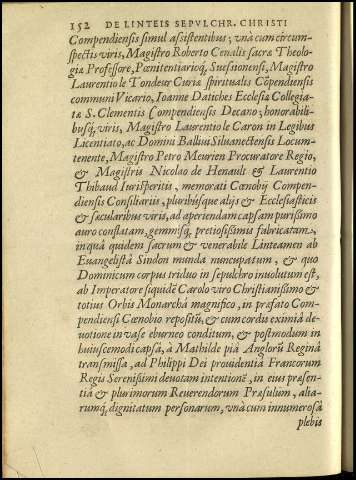 152 DE LINTEIS SEPVLCHR. CHRISTI
Compendiensis simul assistentibus; vnà cum circum-
spectis viris, Magistro Roberto Cenalis sacræ Theolo-
giæ Professore, Pœnitentiarioq́; Suessionensi, Magistro
Laurentio le Tondeur Curiæ spiritualis Cōpendiensis
communi Vicario, Ioanne Datiches Ecclesiæ Collegia-
tæ S. Clementis Compendiensis Decano; honorabili-
busq́; viris, Magistro Laurentio le Caron in Legibus
Licentiato, ac Domini Balliui Siluanectensis Locum-
tenente, Magistro Petro Meurien Procuratore Regio,
& Magistris Nicolao de Henault & Laurentio
Thibaud Iurisperitis, memorati Cœnobij Compen-
diensis Consiliariis, pluribusque alijs & Ecclesiasticis
& sæcularibus viris, ad aperiendam capsam purissimo
auro constatam, gemmisq́; pretiosissimis fabricatam,
in quâ quidem sacrum & venerabile Linteamen ab
Euangelistâ Sindon munda nuncupatum, & quo
Dominicum corpus triduo in sepulchro inuolutum est,
ab Imperatore siquidē Carolo viro Christianissimo &
totius Orbis Monarchâ magnifico, in præfato Com-
pendiensi Cœnobio repositū, & cum cordis eximiâ de-
uotione in vase eburneo conditum, & postmodum in
huiuscemodi capsâ, à Mathilde piâ Anglorū Reginâ
transmissa, ad Philippi Dei prouidentiâ Francorum
Regis Serenissimi deuotam intentionē, in eius præsen-
tiâ & plurimorum Reuerendorum Præsulum, alia-
rumq́; dignitatum personarum, vnà cum innumerosâ
plebis